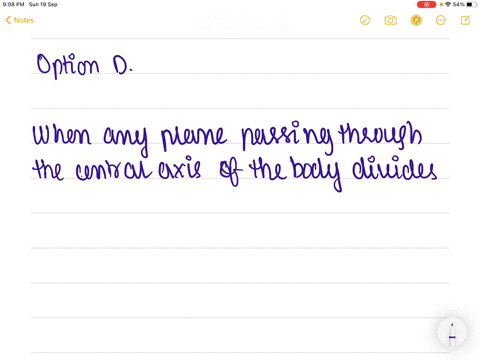 9:08 PM Sun 19 Sep
54%
Notes
Option D.
When any plane passing through
the central axis of the body divides